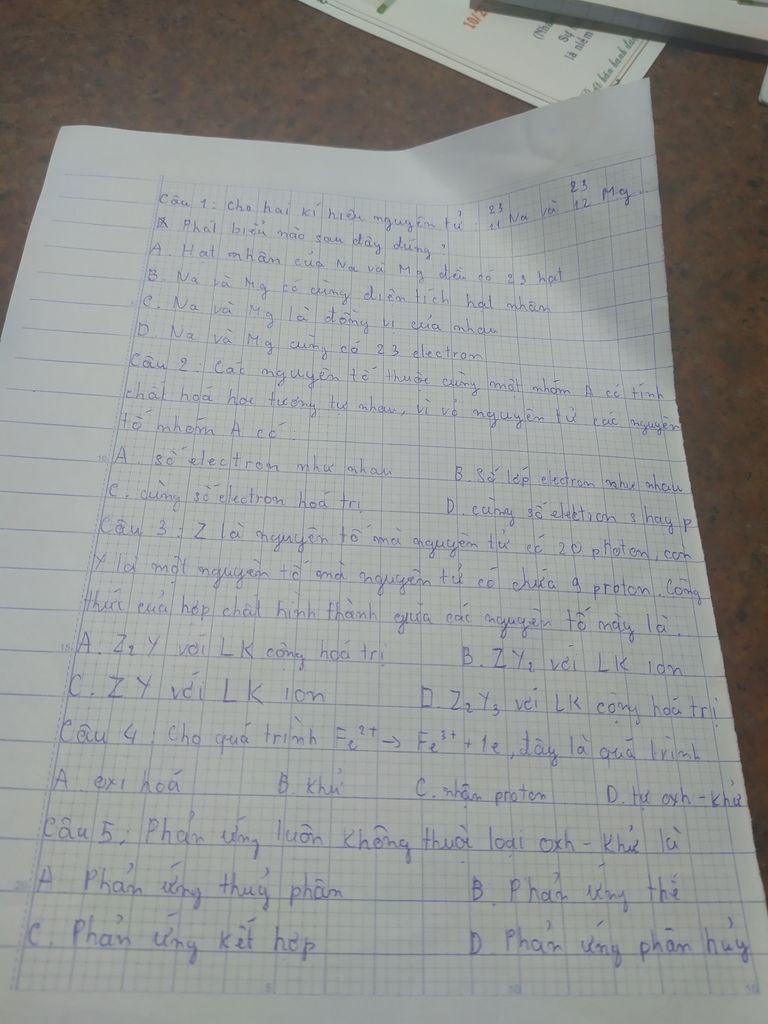 10/2
(Nhà
Sự
là niềm
Câu 1: Cho hai kí hiệu nguyên tử: ²³₁₁Na và ²³₁₂Mg.
Phát biểu nào sau đây đúng?
A. Hạt nhân của Na và Mg đều có 23 hạt
B. Na và Mg có cùng điện tích hạt nhân
C. Na và Mg là đồng vị của nhau
D. Na và Mg cùng có 23 electron
Câu 2: Các nguyên tố thuộc cùng một nhóm A có tính
chất hoá học tương tự nhau, vì vỏ nguyên tử các nguyên
tố nhóm A có:
A. số electron như nhau B. Số lớp electron như nhau
C. cùng số electron hoá trị D. cùng số electron s hay p
Câu 3: Z là nguyên tố mà nguyên tử có 20 photon, còn
Y là một nguyên tố mà nguyên tử có chứa 9 proton. Công
thức của hợp chất hình thành giữa các nguyên tố này là:
A. Z₂Y với LK cộng hoá trị B. ZY₂ với LK ion
C. ZY với LK ion D. Z₂Y₃ với LK cộng hoá trị
Câu 4: Cho quá trình Fe²⁺ → Fe³⁺ + 1e, đây là quá trình
A. oxi hoá B. khử C. nhận proton D. tự oxh - khử
Câu 5: Phản ứng luôn không thuộc loại oxh - khử là
A Phản ứng thuỷ phân B. Phản ứng thế
C. Phản ứng kết hợp D Phản ứng phân hủy